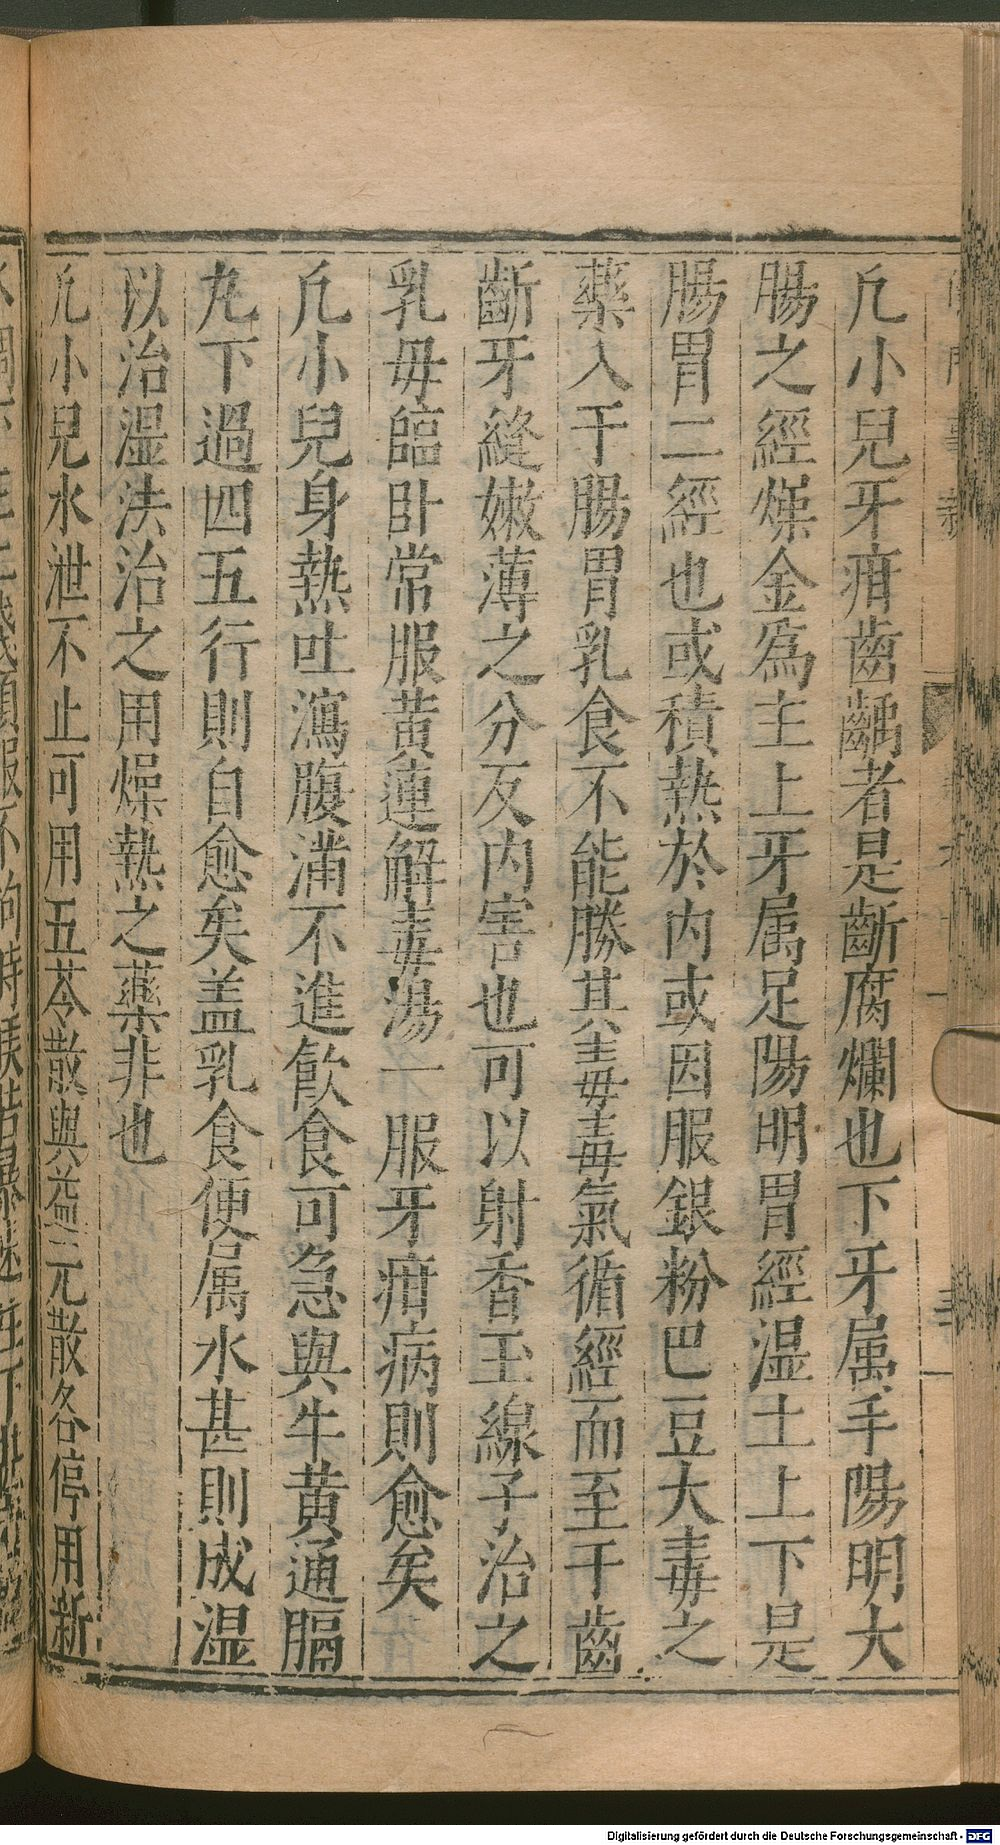 凢小兒牙疳齒齲者是齗腐爛也下牙属手陽明大
腸之經燥金爲主上牙属足陽明胃經湿土上下是
腸胃二經也或積熱於内或因服銀粉巴豆大毒之
藥入于腸胃乳食不能勝其毒毒氣循經而至于齒
齗牙縫嫩薄之分反内害也可以射香玉線子治之
乳毋臨卧常服黄連解毒湯一服牙疳病則愈矣
凢小兒身熱吐瀉腹滿不進飮食可急與牛黄通膈
丸下過四五行則自愈矣盖乳食便属水甚則成湿
以治湿法治之用燥熱之藥非也
凢小兒水泄不止可用五苓散與益元散各停用新
Digitalisierung gefördert durch die Deutsche Forschungsgemeinschaft - DFG